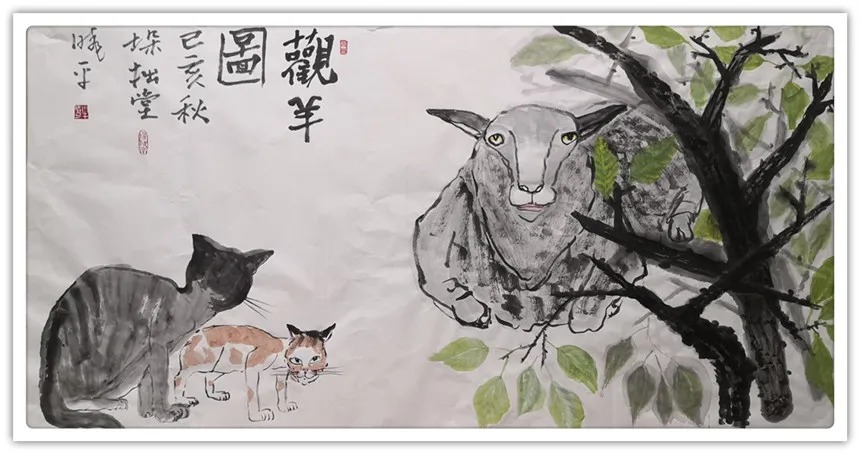 觀羊
圖
己亥秋
拙堂
曉平